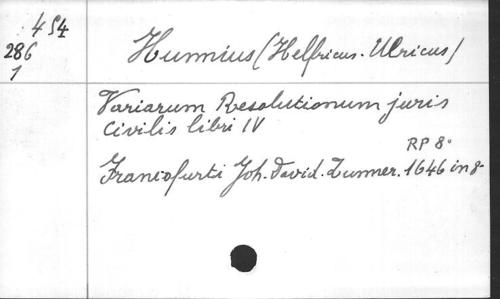 454
286
1
Hunnius (Helfricus-Ulricus)
Variarum Resolutionum juris
Civilis libri IV
RP 8°
Francofurti Joh. David. Zunner. 1646 in 8-